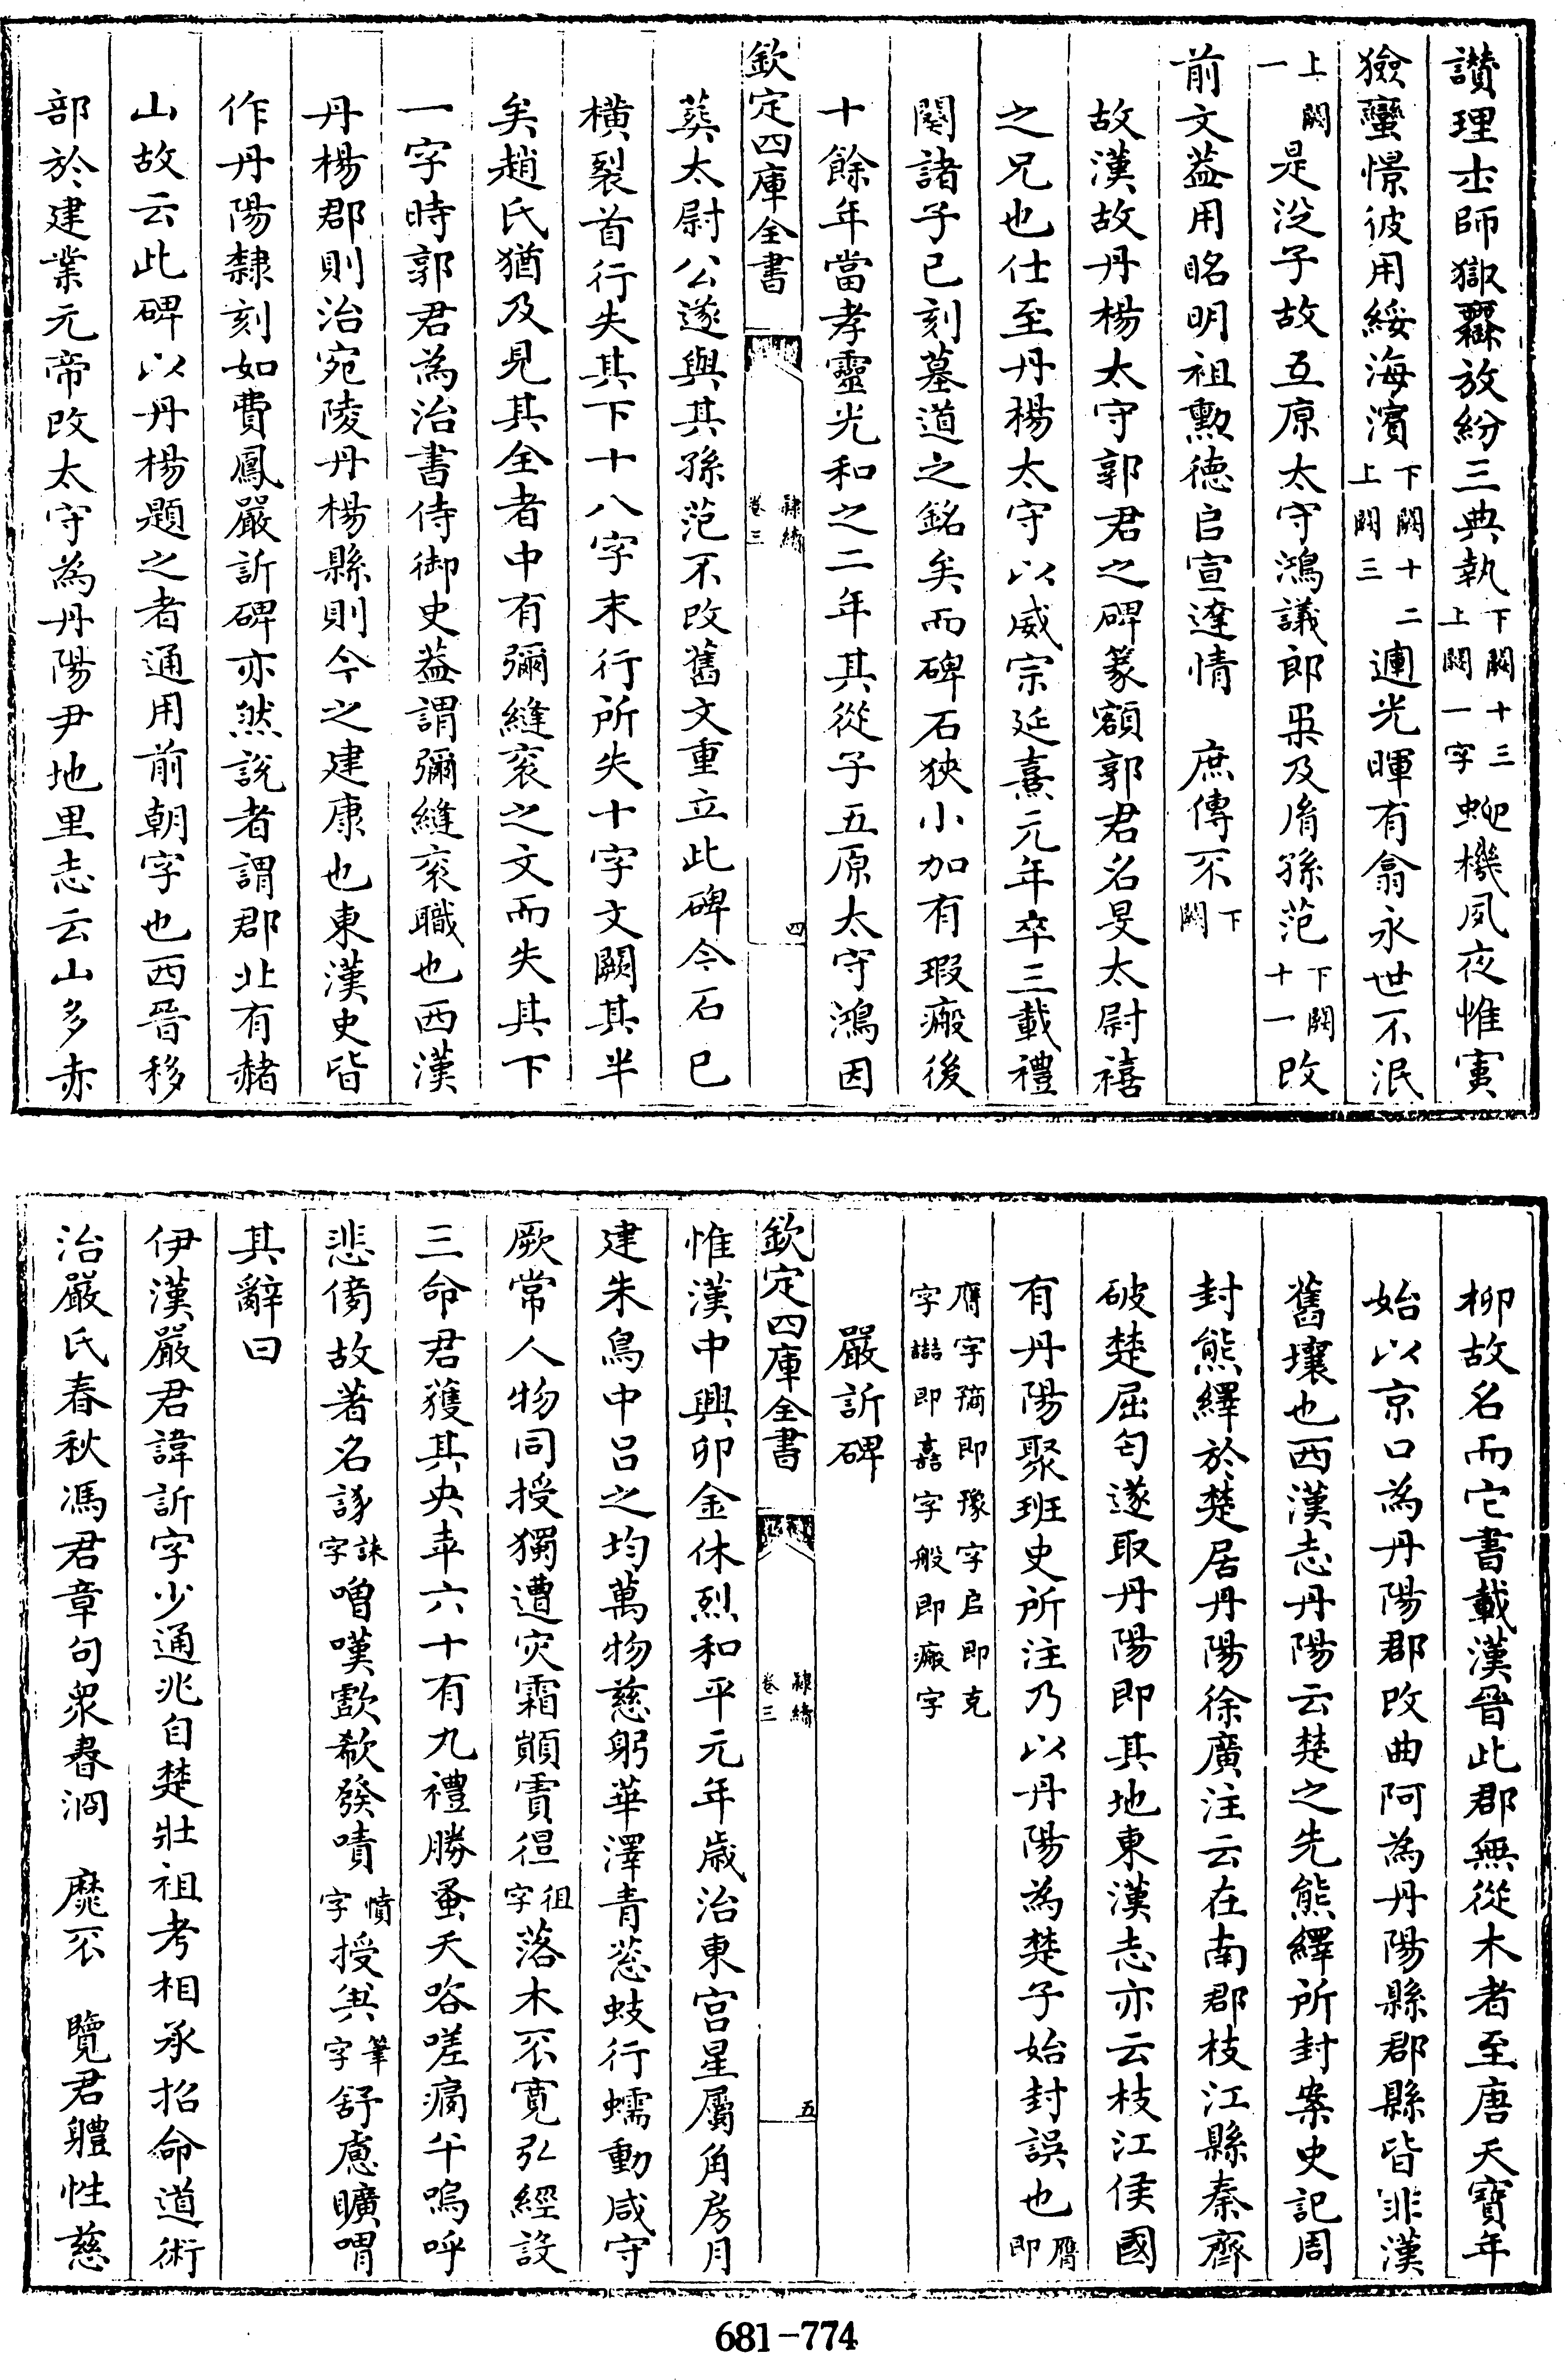 讃理士師獄霺放紛三典執下闕十三上闕一字虵機夙夜惟寅
獫蠻憬彼用綏海濱下闕十二上闕三連光暉有翕永世不泯
上闕一是汦子故五原太守鴻議郎㮚及胤孫范下闕十一改
前文葢用昭明祖勲德㠯宣達情　庶傳不下闕
故漢故丹楊太守郭君之碑篆額郭君名旻太尉禧
之兄也仕至丹楊太守以威宗延熹元年卒三載禮
闋諸子已刻墓道之銘矣而碑石狹小加有瑕瘢後
十餘年當孝靈光和之二年其從子五原太守鴻因
欽定四庫全書　隸續卷三　四
葬太尉公遂與其孫范不改舊文重立此碑今石已
橫裂首行失其下十八字末行所失十字文闕其半
矣趙氏猶及見其全者中有彌縫衮之文而失其下
一字時郭君為治書侍御史葢謂彌縫衮職也西漢
丹楊郡則治宛陵丹楊縣則今之建康也東漢史皆
作丹陽隸刻如費鳳嚴訢碑亦然說者謂郡北有赭
山故云此碑以丹楊題之者通用前朝字也西晉移
部於建業元帝改太守為丹陽尹地里志云山多赤
柳故名而它書載漢晉此郡無從木者至唐天寶年
始以京口為丹陽郡改曲阿為丹陽縣郡縣皆非漢
舊壤也西漢志丹陽云楚之先熊繹所封案史記周
封熊繹於楚居丹陽徐廣注云在南郡枝江縣秦齊
破楚屈匄遂取丹陽即其地東漢志亦云枝江侯國
有丹陽聚班史所注乃以丹陽為楚子始封誤也膺即
膺字䂊即豫字㠯即克字譆即嘉字般即瘢字
嚴訢碑
欽定四庫全書　隸續卷三　五
惟漢中興卯金休烈和平元年歲治東宫星屬角房月
建朱鳥中呂之均萬物慈躬華澤青葱蚑行蠕動咸守
厥常人物同授獨遭灾霜顚賈徂徂字落木不寛弘經設
三命君獲其央幸六十有九禮勝蚤夭咯嗟痛㐄嗚呼
悲傷故著名誄誄字噌嘆歔欷發嘖憤字授㒵筆字舒慮曠喟
其辭曰
伊漢嚴君諱訢字少通兆自楚壯祖考相承招命道術
治嚴氏春秋馮君章句衆眷㵎　麾不　覽君軆性慈
681-774